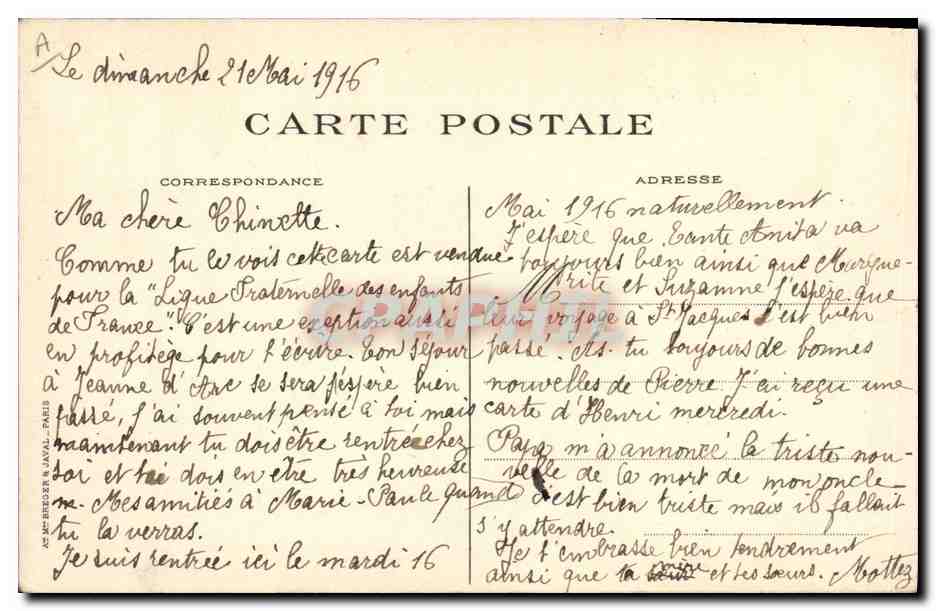 A
Le dimanche 21 Mai 1916
CARTE POSTALE
CORRESPONDANCE
Ma chère Chinette.
Comme tu le vois cette carte est vendue
pour la "Ligue Fraternelle des enfants
de France". C'est une exception aussi
en profitège pour t'écrire. Ton séjour
à Jeanne d'Arc se sera j'espère bien
passé, j'ai souvent pensé à toi mais
maintenant tu dois être rentrée chez
toi et tu dois en être très heureuse
Mes amitiés à Marie-Paule quand
tu la verras.
Je suis rentrée ici le mardi 16
Ate Mes BREGER & JAVAL_PARIS
ADRESSE
Mai 1916 naturellement.
J'espère que tante Anita va
toujours bien ainsi que Margue-
rite et Suzanne j'espère que
leur voyage à St Jacques s'est bien
passé. As-tu toujours de bonnes
nouvelles de Pierre J'ai reçu une
carte d'Henri mercredi.
Papa m'a annoncé la triste nou-
velle de la mort de mon oncle
c'est bien triste mais il fallait
s'y attendre.
Je t'embrasse bien tendrement
ainsi que ta et tes sœurs. Mottez